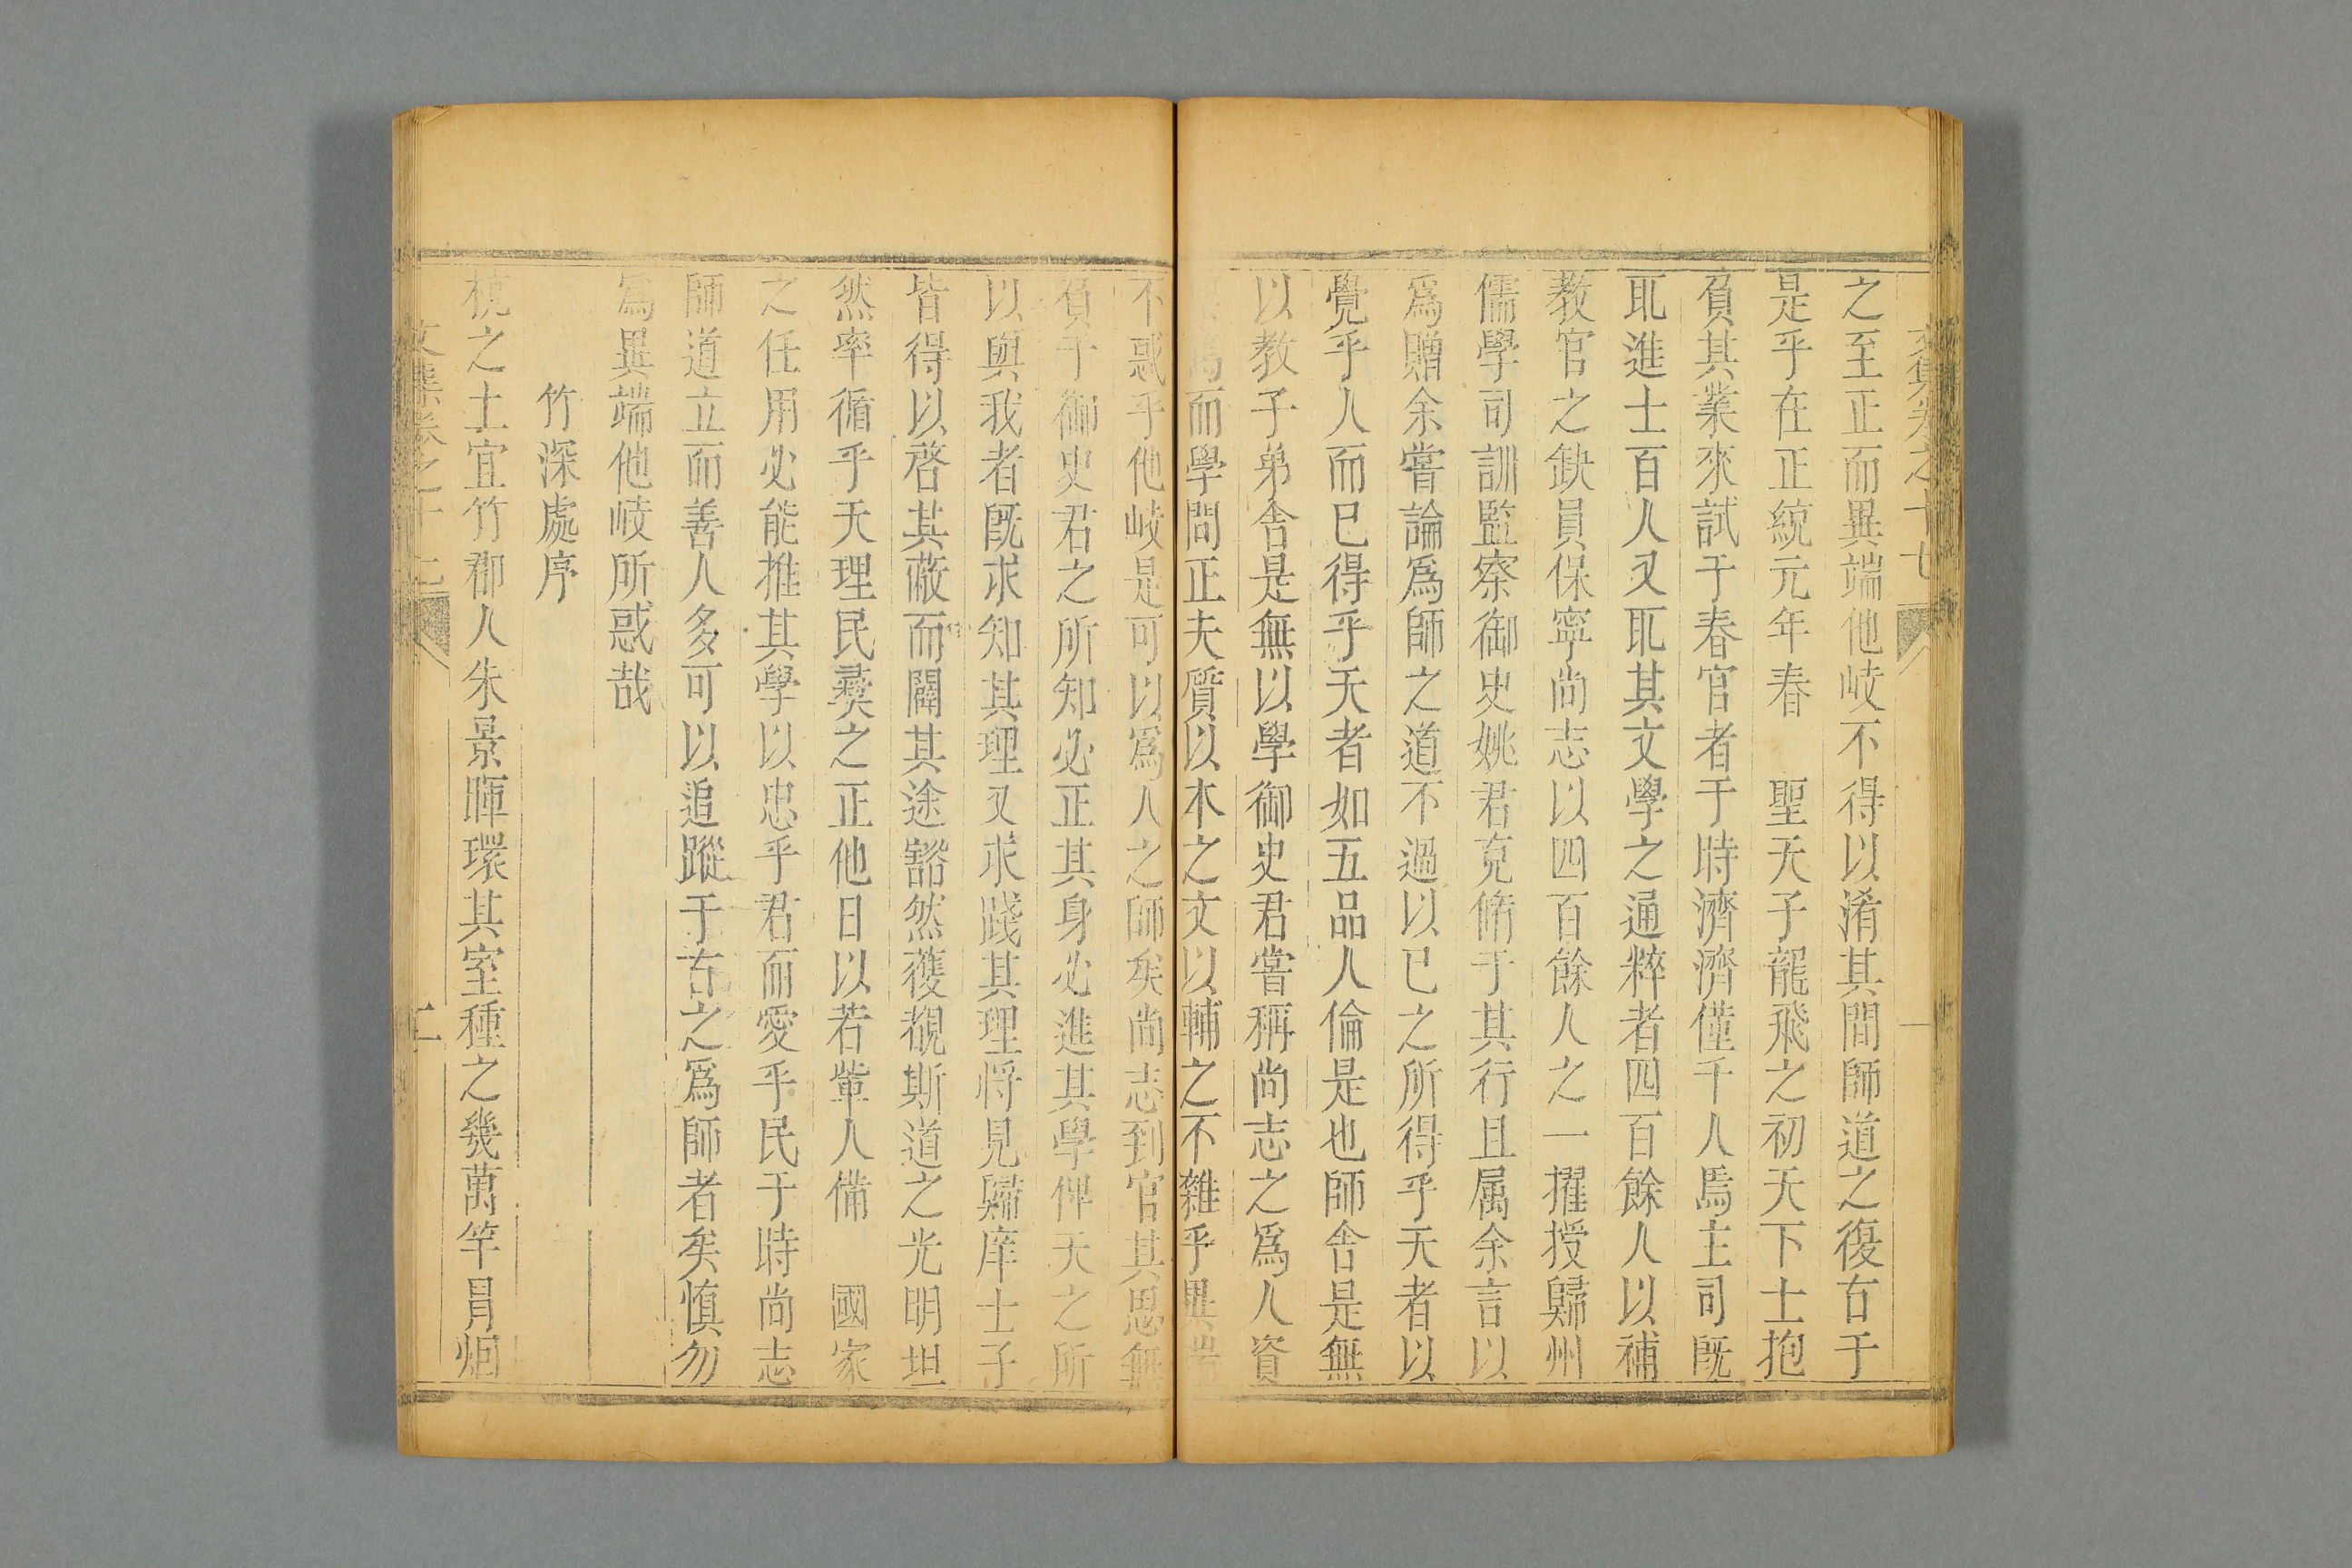 之至正而異端他岐不得以淆其間師道之復右于
是乎在正統元年春　聖天子龍飛之初天下士抱
負其業來試于春官者于時濟濟僅千人焉主司既
取進士百人又取其文學之通粹者四百餘人以補
教官之缺員保寧尚志以四百餘人之一擢授歸州
儒學司訓監察御史姚君克脩于其行且属余言以
爲贈余嘗論爲師之道不過以已之所得乎天者以
覺乎人而已得乎天者如五品人倫是也師舍是無
以教子弟舍是無以學御史君嘗稱尚志之爲人資
而學問正夫質以本之文以輔之不雜乎異端
不惑乎他岐是可以爲人之師矣尚志到官其思無
負于御史君之所知必正其身必進其學俾天之所
以與我者既求知其理又求踐其理將見歸庠士子
皆得以啓其蔽而闢其途豁然獲覩斯道之光明坦
然率循乎天理民彝之正他日以若輩人備　國家
之任用必能推其學以忠乎君而愛乎民于時尚志
師道立而善人多可以追蹤于古之爲師者矣慎勿
爲異端他岐所惑哉
竹深處序
杭之土宜竹郡人朱景暉環其室種之幾萬竿肙炬
文集卷之十
二